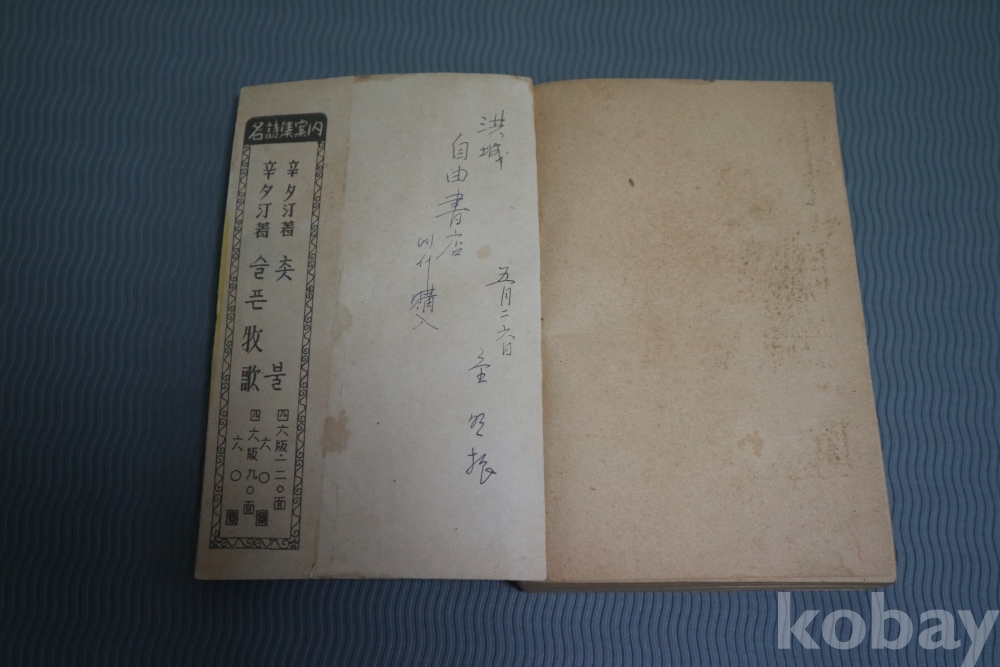 名詩集案內
辛夕汀著 촛불 四六版·一二〇面
六〇圓
辛夕汀著 슬픈牧歌 四六版九〇面
六〇圓
洪城
自由書店
에서 購入
五月二六日
金 振